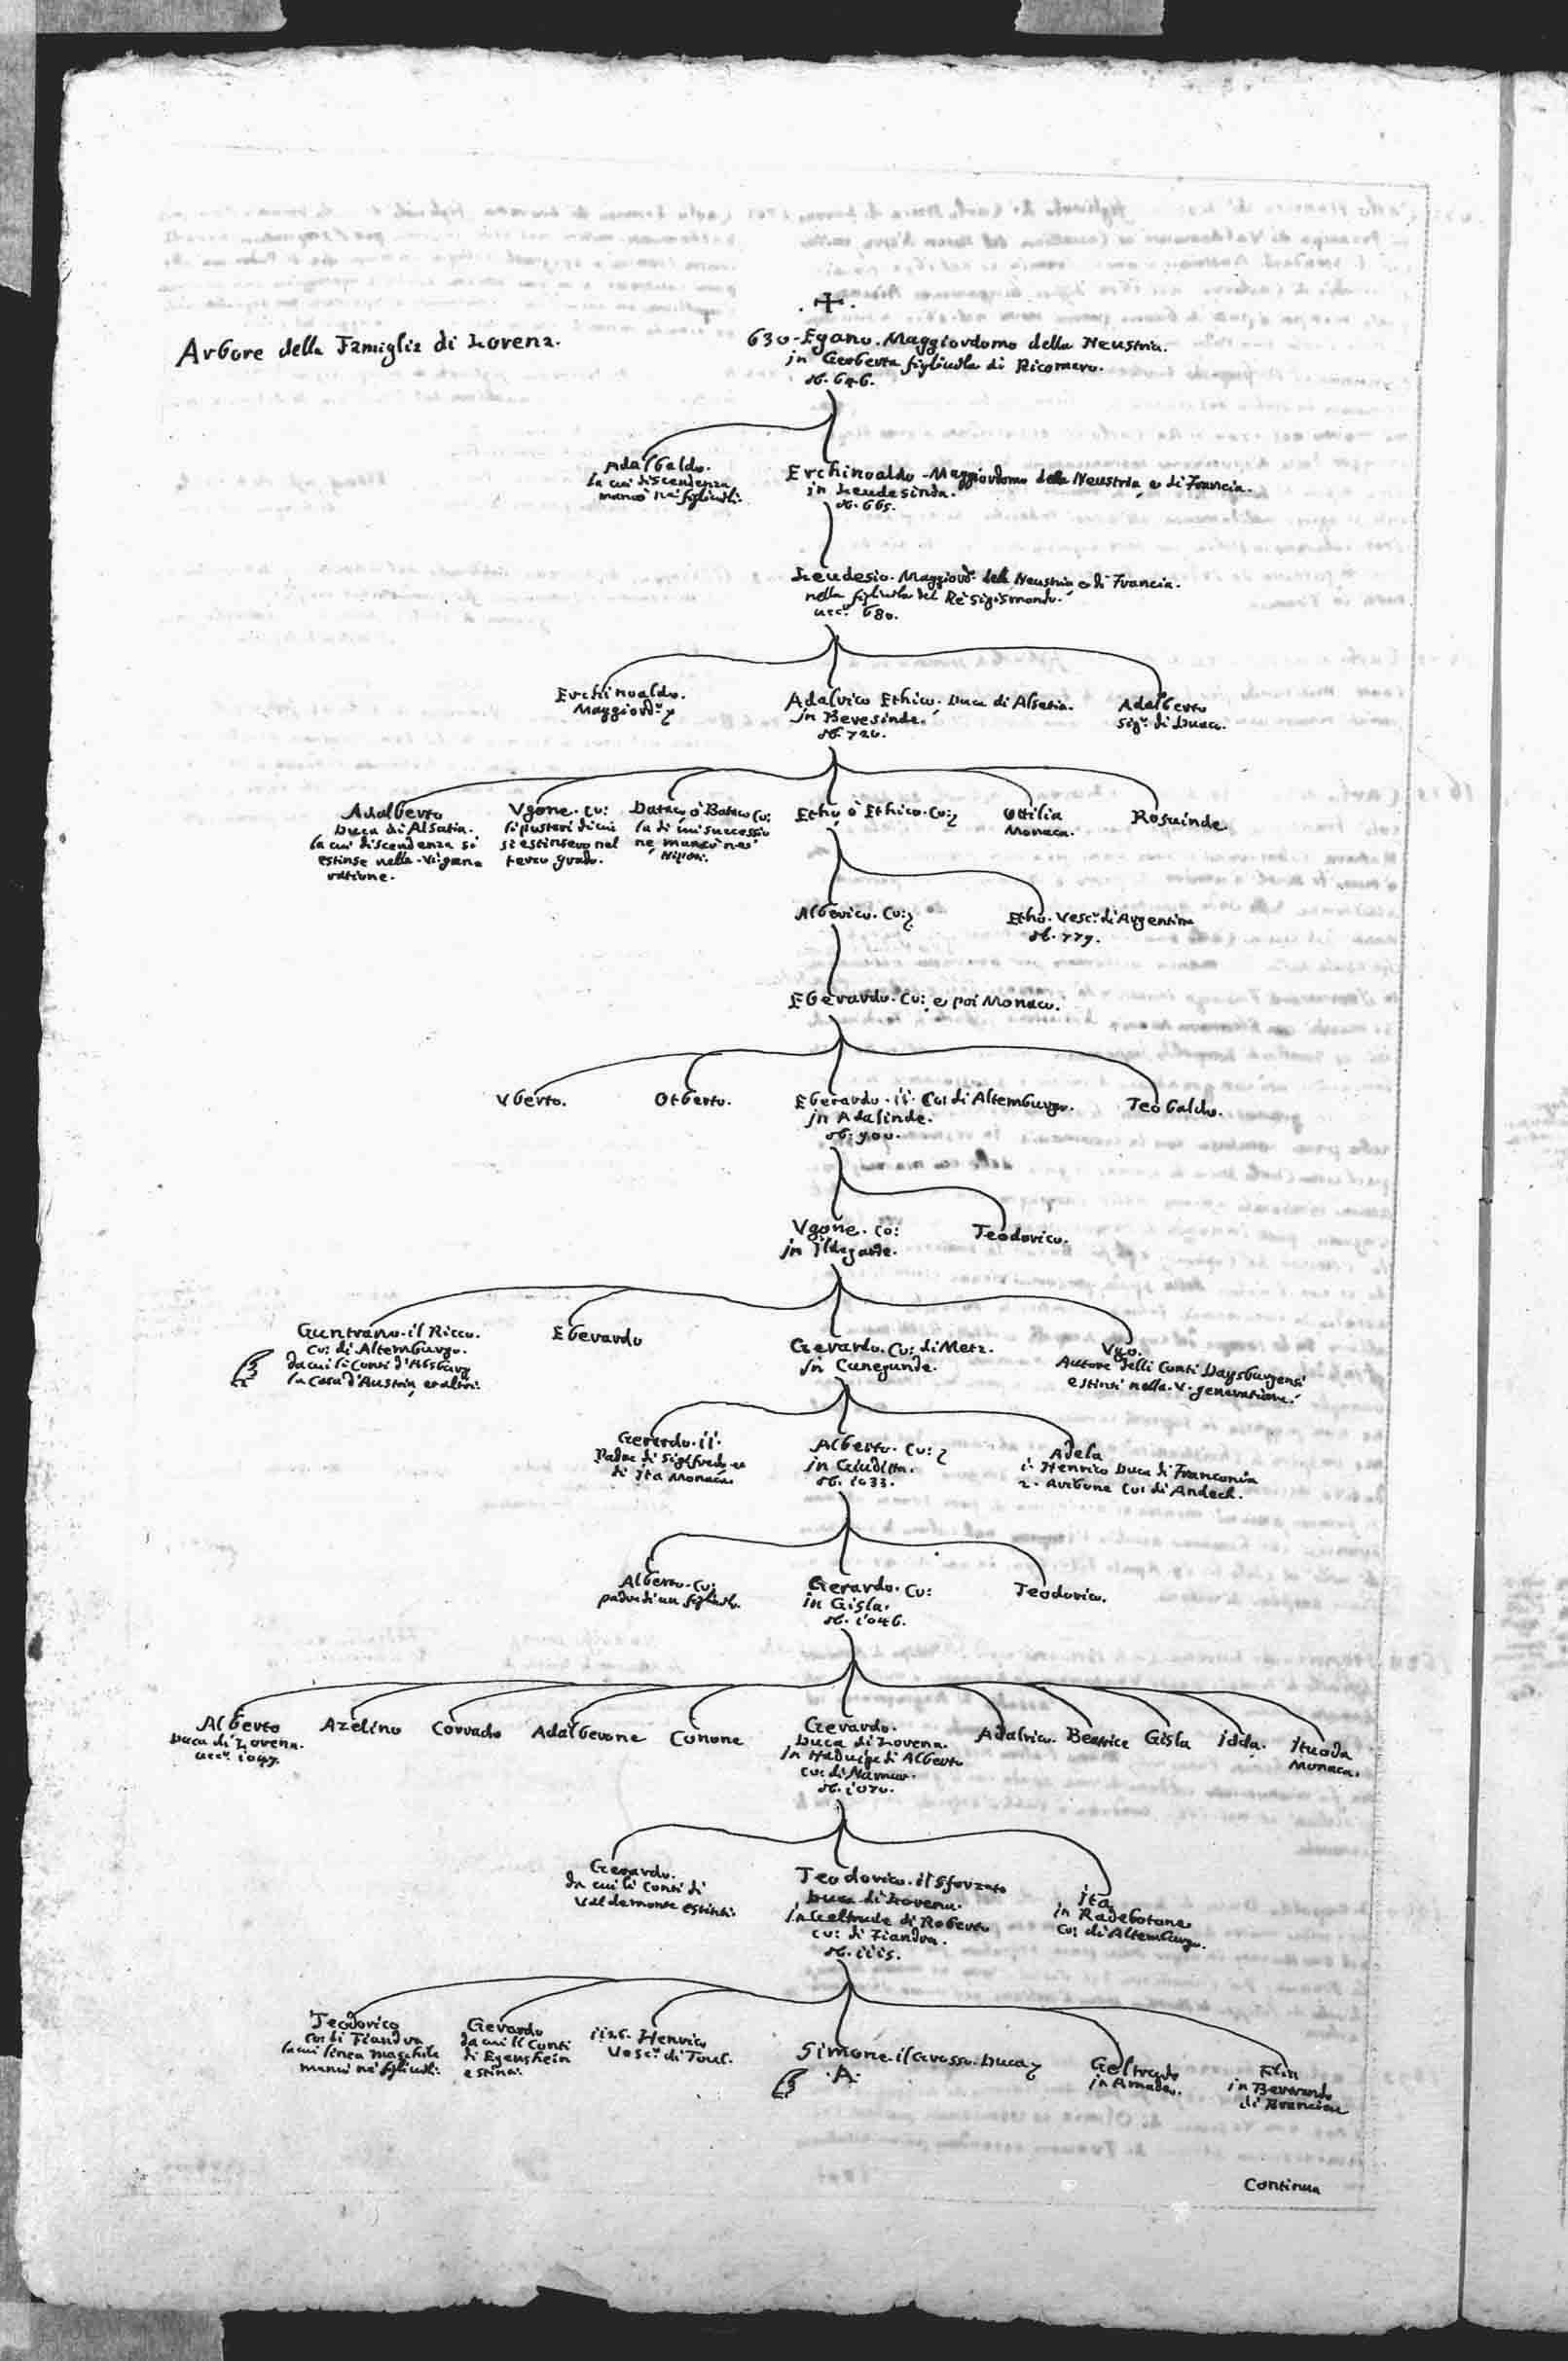 .+.
Arbore della Famiglia di Lorena.
630-Egano. Maggiordomo della Neustria.
in Gerberta figliuola di Ricomero.
ob. 646.
Adalbaldo.
la cui discendenza
mancò ne' figliuoli.
Erchinoaldo - Maggiordomo della Neustria, e di Francia.
in Leudesinda.
ob. 665.
Leudesio. Maggiord.º della Neustria, e di Francia.
nella figliuola del Rè Sigismondo.
ucc.º 680.
Erchinoaldo.
Maggiord.º
Adalrico Ethico. Duca di Alsatia.
in Beresinde.
ob. 720.
Adalberto
Sig.r di Duaco.
Adalberto
Duca di Alsatia.
la cui discendenza si
estinse nella Vi gene
ratione.
Vgone. Co:
li posteri di cui
si estinsero nel
terzo grado.
Bataco ò Bataco Co:
la di cui successio
ne mancò ne'
Nipoti.
Etho, ò Ethico. Co:
Ottilia
Monaca.
Rosuinde
Alberico. Co:
Etho. Vesc.º di Argentina
ob. 779.
Eberardo. Co: e poi Monaco.
Vberto.
Otberto.
Eberardo. ii. Co: di Altemburgo.
in Adalinde.
ob. 900.
Teobaldo.
Vgone. Co:
in Ildegarde.
Teodorico.
Guntrano. il Ricco.
Co: di Altemburgo.
da cui li Conti d'Absburg
la Casa d'Austria, et altri.
Eberardo
Gerardo. Co: di Metz.
in Cunegunde.
Vgo.
Autore delli Conti Daysburgensi
estinti nella. V. generatione.
Gerardo. ii.
Padre di Sigifredo, et
di Ita Monaca.
Alberto. Co:
in Giuditta.
ob. 1033.
Adela
i. Henrico Duca di Franconia
2. Aribone Co: di Andech.
Alberto. Co:
padre di un figliuolo.
Gerardo. Co:
in Gisla.
ob. 1046.
Teodorico.
Alberto
Duca di Lorena.
ucc.º 1047.
Azelino
Corrado
Adalberone
Conone
Gerardo.
Duca di Lorena.
in Haduige di Alberto
Co: di Namur.
ob. 1070.
Adalrico.
Beatrice
Gisla
idda.
ituoda
Monaca.
Gerardo.
da cui li Conti di
Valdemonte estinti.
Teodorico. il Sforzato
Duca di Lorena.
in Geltrude di Roberto
Co: di Fiandra.
ob. 1115.
ita
in Radebotone
Co: di Altemburgo.
Teodorico
Co: di Fiandra
la cui linea maschile
mancò ne' figliuoli.
Gerardo
da cui li Conti
di Egenshein
estinti.
1126. Henrico
Vesc.º di Toul.
Simone. il Grosso. Duca
.A.
Geltrude
in Amadeo.
in Berardo
di
Continua